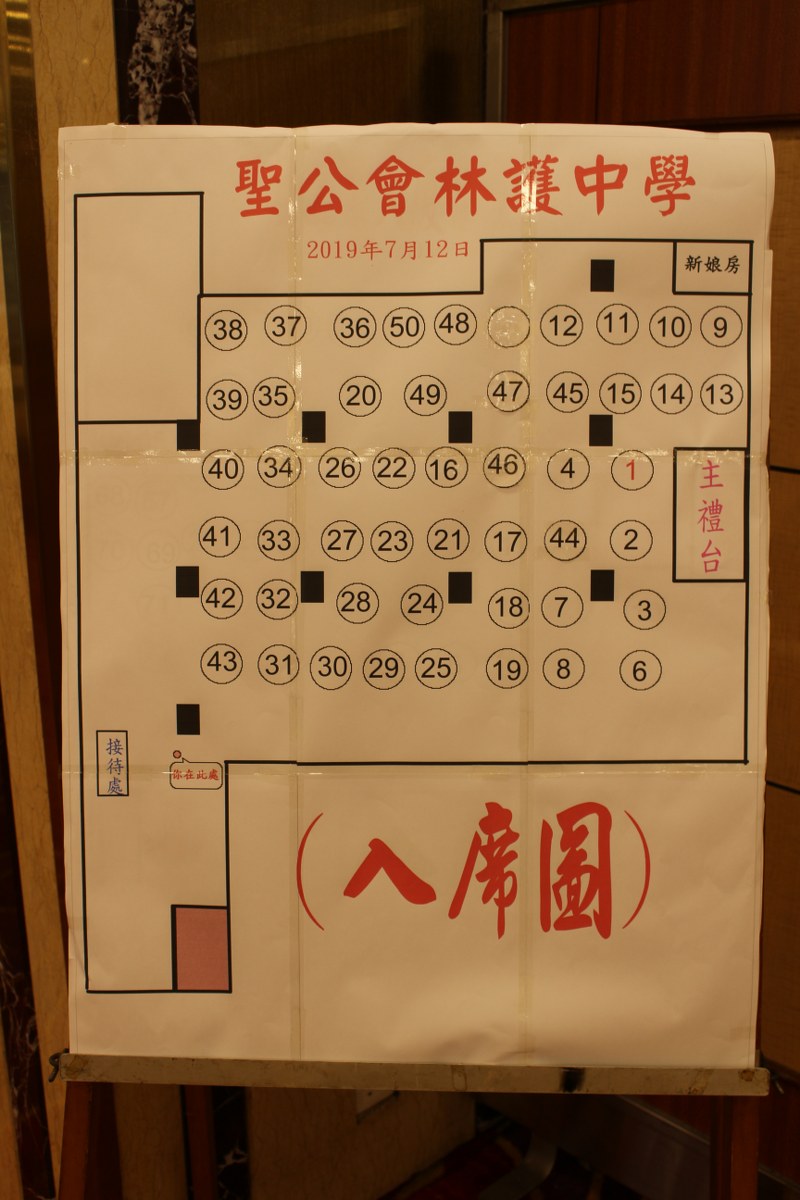 聖公會林護中學
2019年7月12日
新娘房
38 37 36 50 48 12 11 10 9
39 35 20 49 47 45 15 14 13
40 34 26 22 16 46 4 1
主禮台
41 33 27 23 21 17 44 2
42 32 28 24 18 7 3
43 31 30 29 25 19 8 6
接待處
你在此處
(入席圖)